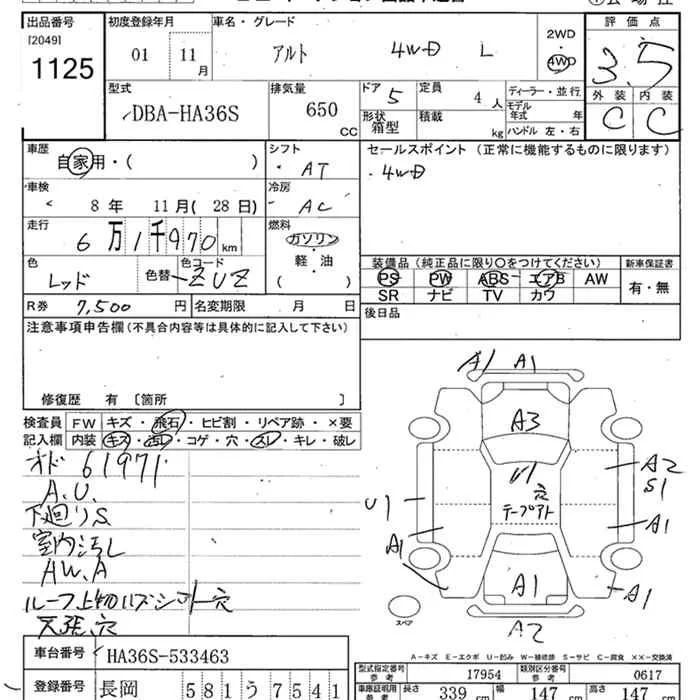 出品番号 初度登録年月 車名・グレード 評価点
[2049] 1125 01 11月 アルト 4WD L 2WD・4WD 3.5
型式 排気量 ドア 5 定員 4人 ディーラー・並行 外装 内装
DBA-HA36S 650cc 形状 箱型 積載 kg モデル年式 年 C C
ハンドル 左・右
車歴 シフト セールスポイント(正常に機能するものに限ります)
自家用・( ) AT 4WD
車検 冷房
8年 11月(28日) AC
走行 燃料
6万1千970km ガソリン・軽・油
色 色コード ( ) 装備品(純正品に限り○をつけてください) 新車保証書
レッド 色替 ZUZ PS PW ABS エアB AW 有・無
SR ナビ TV カワ
R券 7,500円 名変期限 月 日 後日品
注意事項申告欄(不具合内容等は具体的に記入して下さい)
修復歴 有 〔箇所 〕
検査員 FW キズ・飛石・ヒビ割・リペア跡・×要
記入欄 内装 キズ・汚レ・コゲ・穴・スレ・キレ・破レ
オド 61971
A.U.
下廻りS
室内汚レ
AW.A
穴
天張穴
A1 A1
A3
U1
穴
テープアト
A2
S1
U1
A1
A1
A1
A1
A2
スペア
A-キズ E-エクボ U-凹み W-補修跡 S-サビ C-腐食 ××-交換済
車台番号 HA36S-533463
型式指定番号 参考 17954 類別区分番号 参考 0617
登録番号 長岡 581う7541
車庫証明用 参考 長さ 339cm 幅 147cm 高さ 147cm